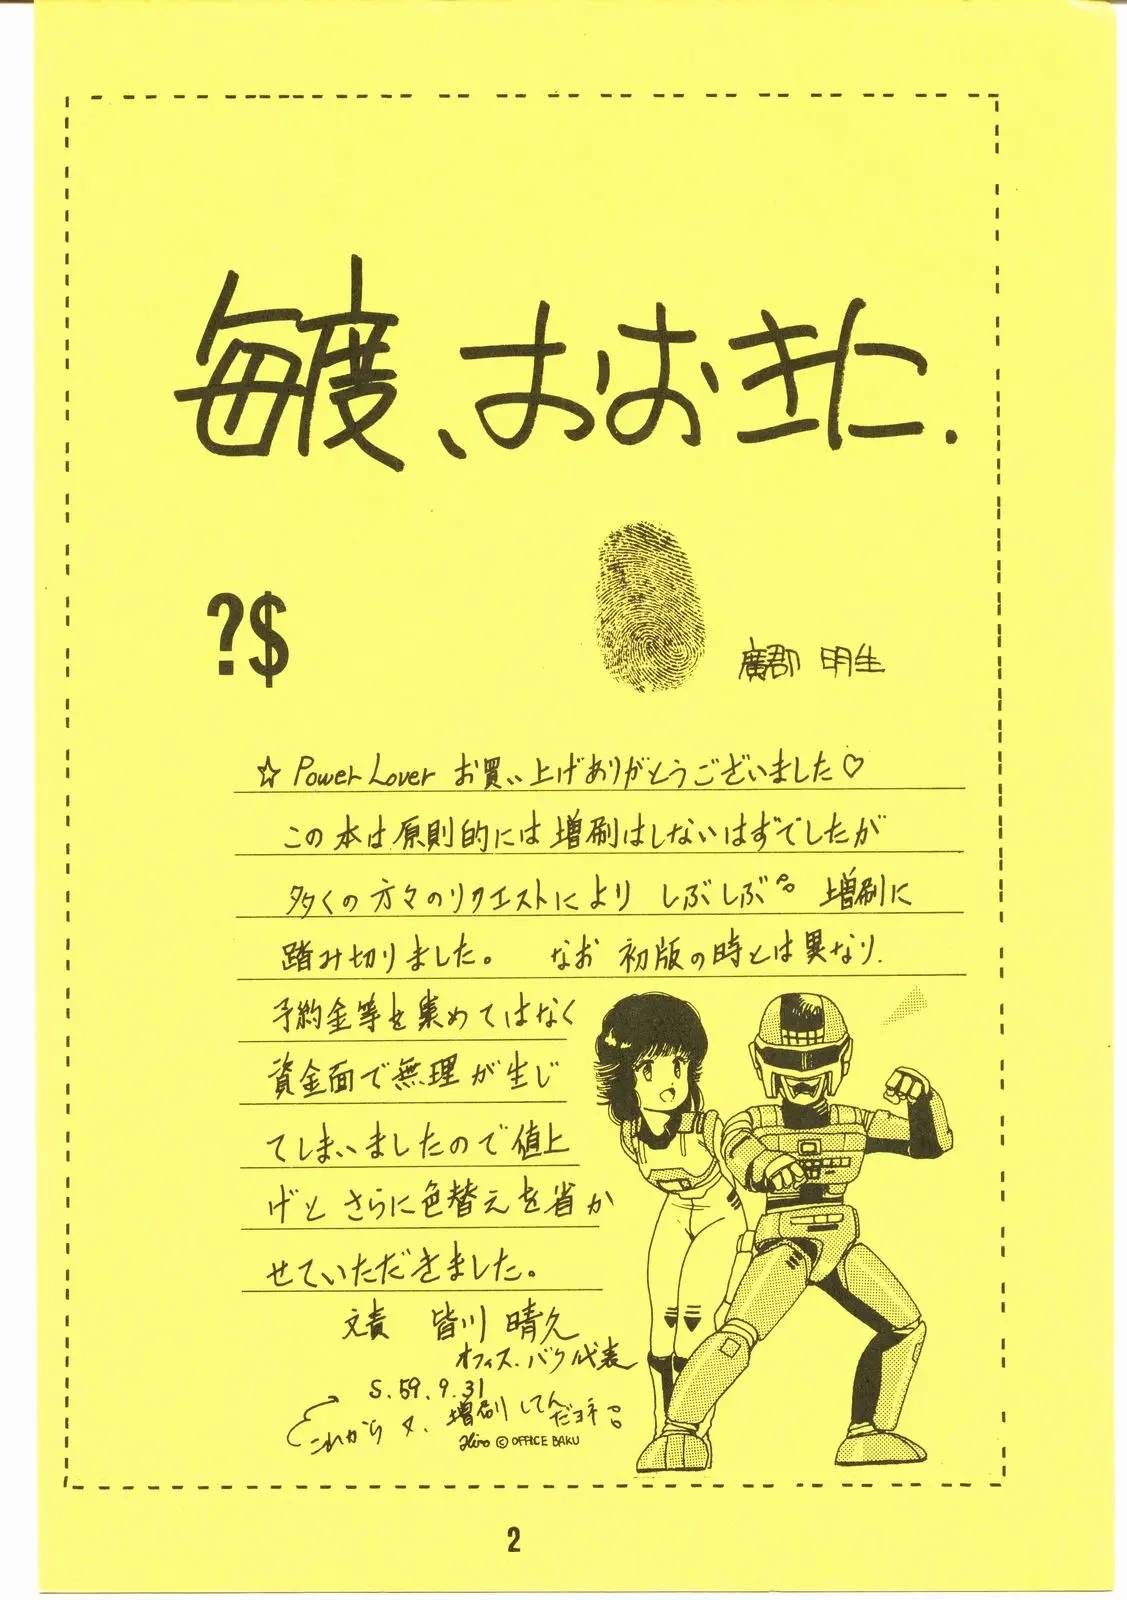 毎度、おおきに.
?$
廣郡 明生
☆ Power Lover お買い上げありがとうございました♡
この本は原則的には増刷はしないはずでしたが
多くの方々のリクエストにより しぶしぶ 増刷に
踏み切りました。 なお 初版の時とは異なり.
予約金等を集めてはなく
資金面で無理が生じ
てしまいましたので値上
げと さらに色替えを省か
せていただきました。
文責 皆川 晴久
オフィス.バク代表
S.59.9.31
これから又、増刷してんだヨネ
Hiro © OFFICE BAKU
2